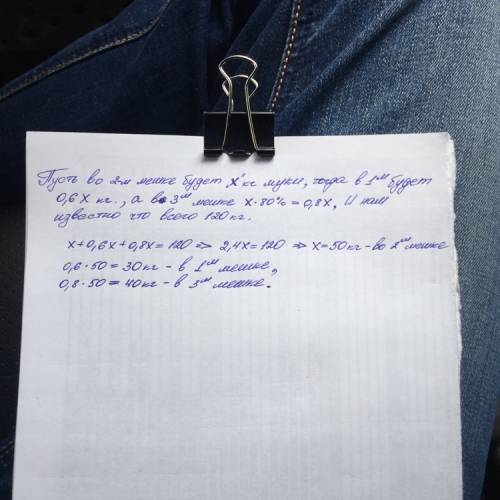 Пусть во 2-м мешке будет „x" кг муки, тогда в 1ᵐ будет
0,6x кг., а в 3ᵐ мешке x·80% = 0,8x, и нам
известно что всего 120 кг.
x+0,6x+0,8x=120 => 2,4x=120 => x=50кг-во 2ᵒᵐ мешке
0,6·50=30кг-в 1ᵒᵐ мешке,
0,8·50=40кг-в 3ᵐ мешке.